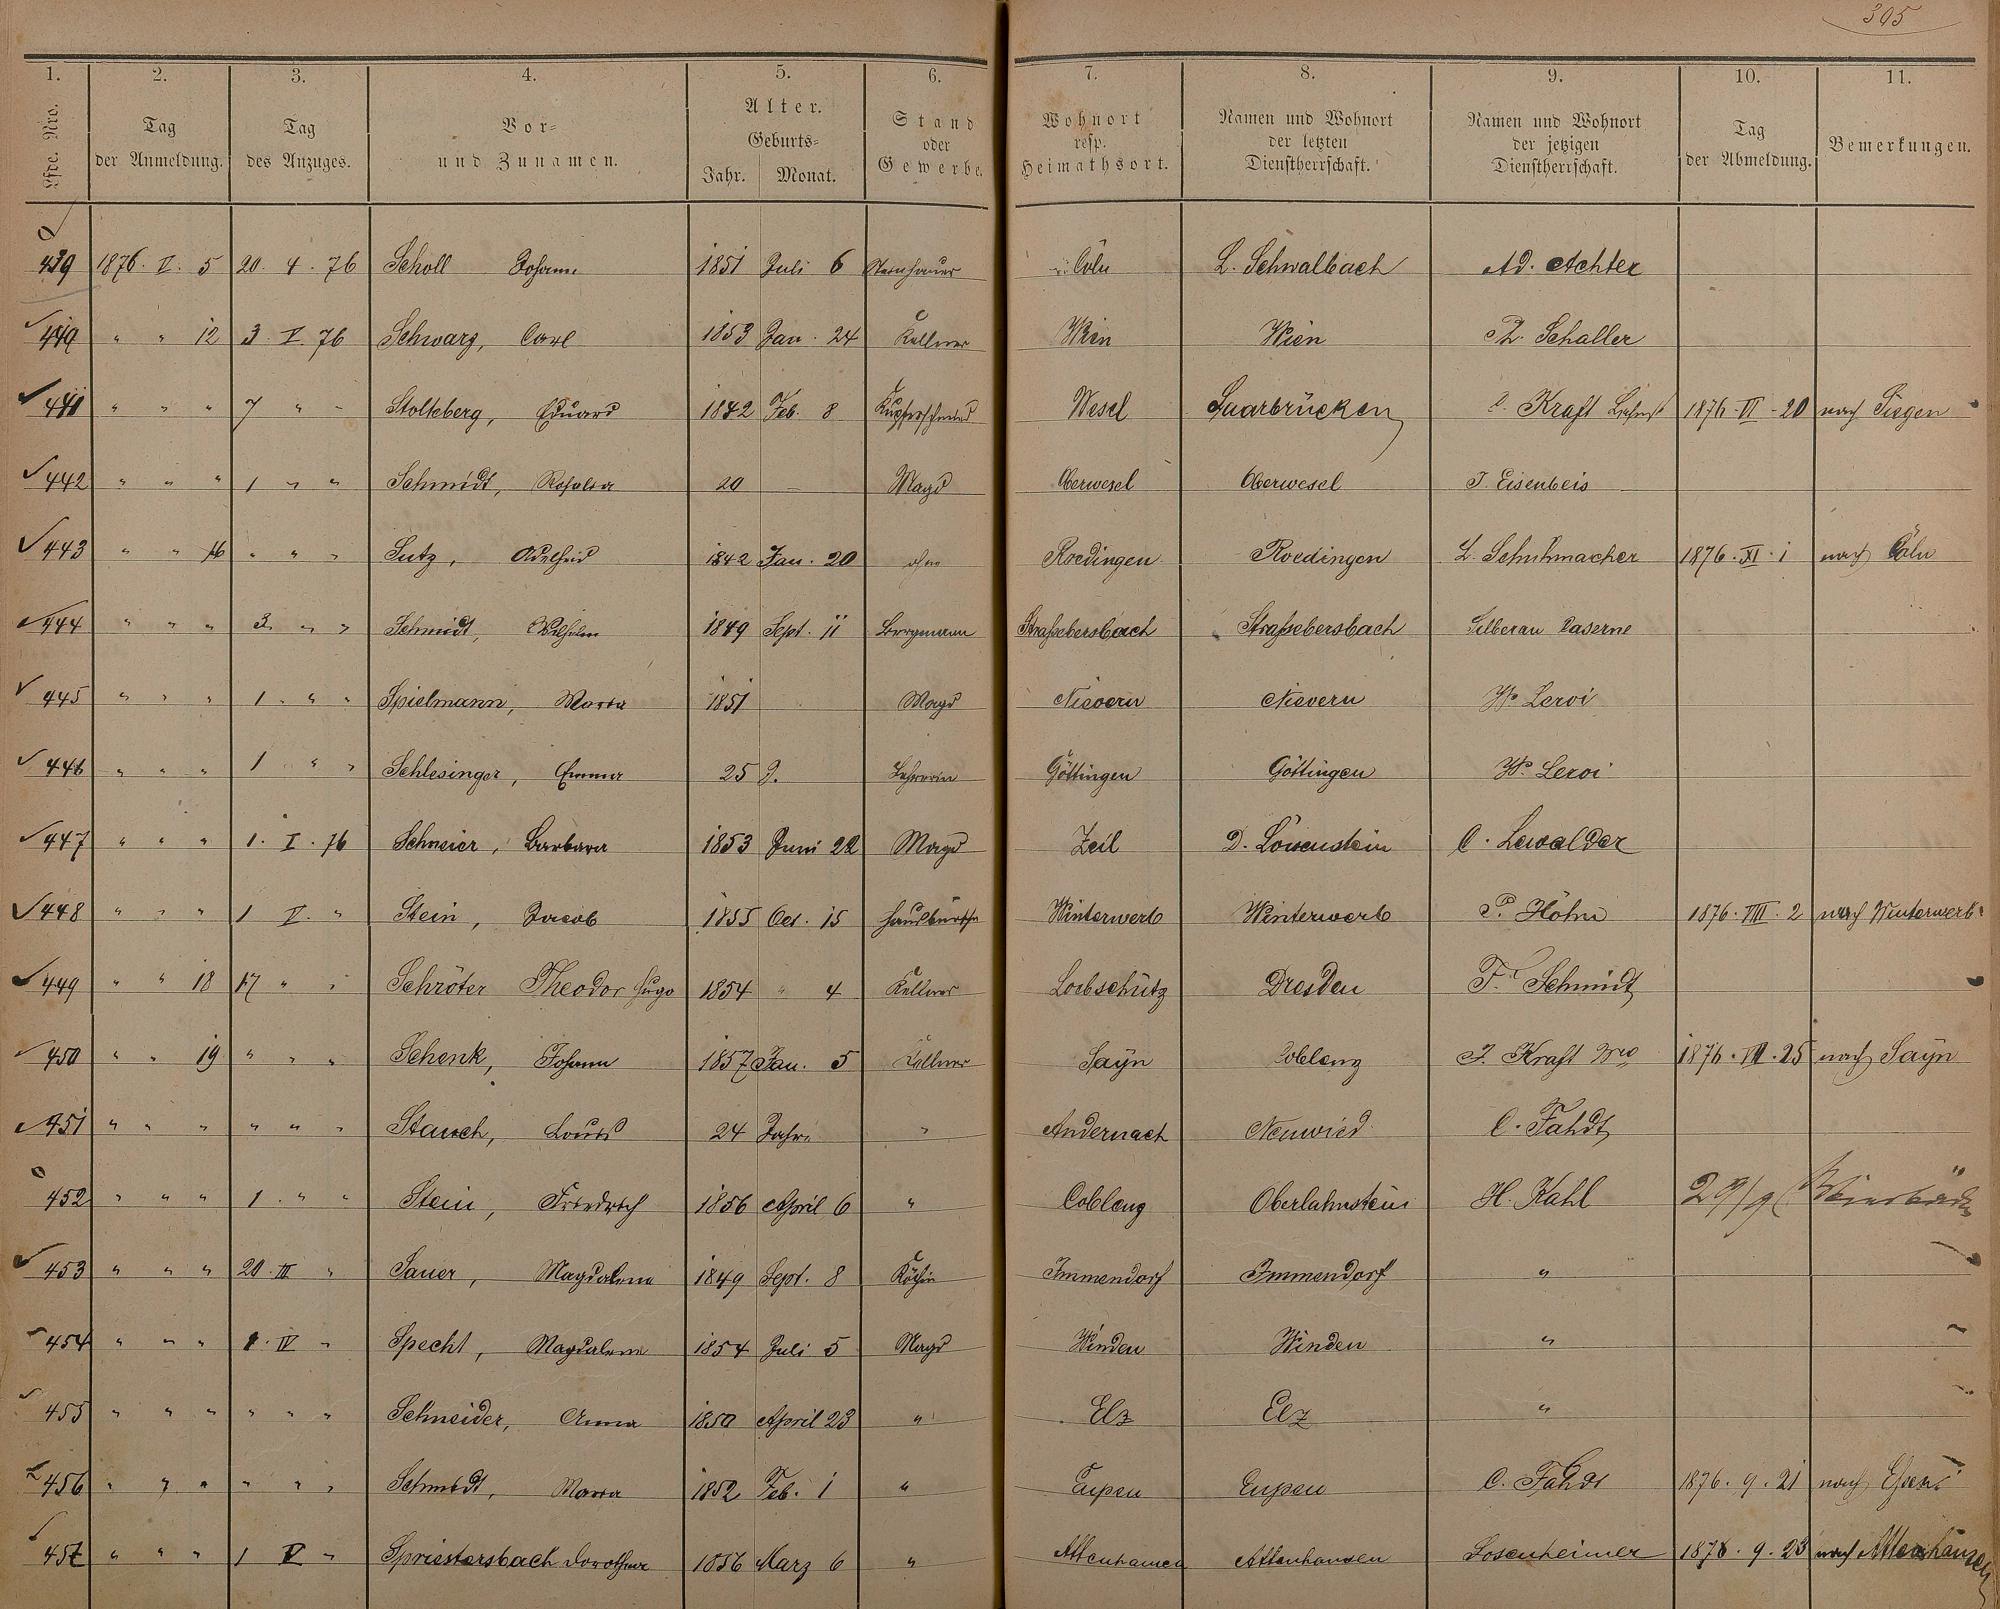 305
1. 2. 3. 4. 5. 6. 7. 8. 9. 10. 11.
Lfde. Nro. Tag der Anmeldung. Tag des Anzuges. Vor= und Zunamen. Alter. Geburts= Jahr. Monat. Stand oder Gewerbe. Wohnort resp. Heimathsort. Namen und Wohnort der letzten Dienstherrschaft. Namen und Wohnort der jetzigen Dienstherrschaft. Tag der Abmeldung. Bemerkungen.
439 1876. V. 5 20. 4. 76 Scholl Johann 1851 Juli 6 Steinhauer Cöln L. Schwalbach Ad. Achter
440 " " 12 3. V. 76 Schwarz, Carl 1853 Jan. 24 Kellner Wien Wien Schaller
441 " " " 7 " " Stolteberg, Eduard 1842 Feb. 8 Kupferschmied Wesel Saarbrücken C. Kraft 1876. VI. 20 nach Siegen
442 " " " 1 " " Schmidt, Rosalia 20 — Magd Oberwesel Oberwesel J. Eisenbeis
443 " " 16 " " " Lutz, Adelheid 1842 Jan. 20 ohne Roedingen Roedingen L. Schuhmacher 1876. XI. 1 nach Cöln
444 " " " 3 " " Schmidt, Wilhelm 1849 Sept. 11 Bergmann Straßebersbach Straßebersbach Silberau Caserne
445 " " " 1 " " Spielmann, Maria 1851 Magd Nievern Nievern W. Leroi
446 " " " 1 " " Schlesinger, Emma 25 J. Lehrerin Göttingen Göttingen W. Leroi
447 " " " 1. I. 76 Schneier, Barbara 1853 Juni 22 Magd Zeil D. Löwenstein C. Lewalder
448 " " " 1 V. " Stein, Jacob 1855 Oct. 15 Hausbursche Winterwerb Winterwerb P. Höhn 1876. VIII. 2 nach Winterwerb
449 " " 18 17 " " Schröter Theodor Hugo 1854 " 4 Kellner Loebschütz Dresden F. Schmidt
450 " " 19 " " " Schenk, Johann 1857 Jan. 5 Kellner Sayn Coblenz J. Kraft 1876. VII. 25 nach Sayn
451 " " " " " " Stauch, Louis 24 Jahre " Andernach Neuwied C. Fahdt
452 " " " 1. " " Stein, Friedrich 1856 April 6 " Coblenz Oberlahnstein H. Kahl 29/9
453 " " " 20. III " Sauer, Magdalena 1849 Sept. 8 Köchin Immendorf Immendorf "
454 " " " 1. IV " Specht, Magdalena 1854 Juli 5 Magd Winden Winden "
455 " " " " " " Schneider, Anna 1850 April 23 " Elz Elz "
456 " " " " " " Schmidt, Maria 1852 Feb. 1 " Eupen Eupen C. Fahdt 1876. 9. 21 nach
457 " " " 1 V " Spriestersbach Dorothea 1856 Marz 6 " Attenhausen Attenhausen Losenheimer 1876. 9. 23 nach Attenhausen